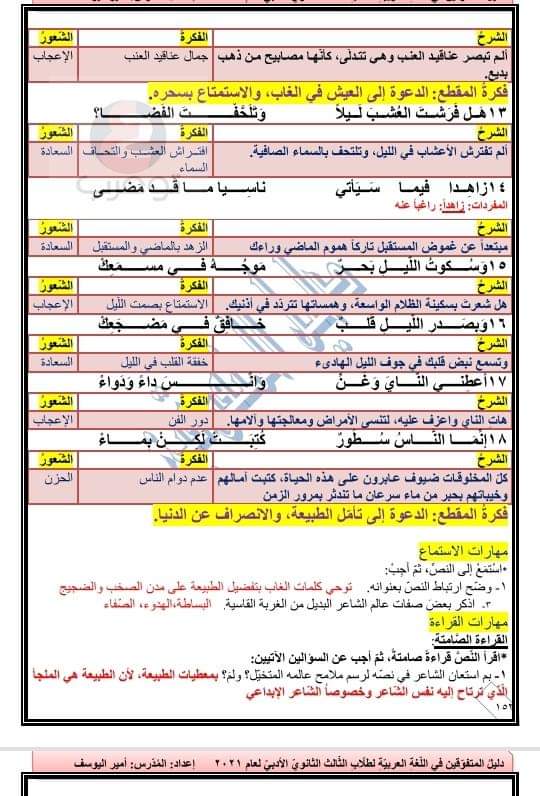 الشرحُ الفكرةُ الشعورُ
ألم تبصر عناقيد العنب وهي تتدلّى، كأنّها مصابيح من ذهب بديع. جمال عناقيد العنب الإعجاب
فكرةُ المقطع: الدعوة إلى العيش في الغاب، والاستمتاع بسحره.
١٣هَل فَرَشتَ العُشبَ لَيلاً وَتَلَحَّفتَ الفَضا؟
الشرحُ الفكرةُ الشعورُ
ألم تفترش الأعشاب في الليل، وتلتحف بالسماء الصافية. افتراش العشب والتحاف السماء السعادة
١٤زاهدا فيما سَيَأتي ناسِيا ما قَد مَضى
المفردات: زاهداً: راغباً عنه
الشرحُ الفكرةُ الشعورُ
مبتعداً عن غموض المستقبل تاركاً هموم الماضي وراءك الزهد بالماضي والمستقبل السعادة
١٥وَسُكوتُ اللَّيلِ بَحرٌ مَوجُهُ في مسمَعِكْ
الشرحُ الفكرةُ الشعورُ
هل شعرت بسكينة الظلام الواسعة، وهمساتها تتردّد في أذنيك. الاستمتاع بصمت اللّيل الإعجاب
١٦وَبِصَدرِ اللَّيلِ قَلبٌ خافِقٌ في مَضجَعِكْ
الشرحُ الفكرةُ الشعورُ
وتسمع نبض قلبك في جوف الليل الهادىء خفقة القلب في الليل السعادة
١٧أَعطِني النّايَ وَغَنِّ وَانْسَ داءً وَدَواءُ
الشرحُ الفكرةُ الشعورُ
هات الناي واعزف عليه، لتنسى الأمراض ومعالجتها وآلامها. دور الفن الإعجاب
١٨إنَّما النّاسُ سُطورٌ كُتِبَتْ لَكِنْ بِماءُ
الشرحُ الفكرةُ الشعورُ
كلّ المخلوقات ضيوف عابرون على هذه الحياة، كتبت آمالهم وخيباتهم بحبر من ماء سرعان ما تندثر بمرور الزمن عدم دوام الناس الحزن
فكرةُ المقطع: الدعوة إلى تأمّل الطبيعة، والانصراف عن الدنيا.
مهارات الاستماع
*استَمَعُ إلى النصّ، ثمّ أجِبْ:
١- وضّح ارتباط النصّ بعنوانه. توحي كلمات الغاب بتفضيل الطبيعة على مدن الصخب والضجيج
٢. اذكر بعضَ صفات عالم الشاعر البديل من الغربة القاسية. البساطة،الهدوء، الصّفاء
مهارات القراءة
القراءة الصّامتة:
*اقرأ النّصّ قراءةً صامتةً، ثمّ أجب عن السؤالين الآتيين:
١- بم استعان الشاعر في نصّه لرسم ملامح عالمه المتخيّل؟ ولمَ؟ بمعطيات الطبيعة، لأن الطبيعة هي الملجأ
الّذي ترتاح إليه نفس الشّاعر وخصوصاً الشّاعر الإبداعي
دليل المتفوّقين في اللّغة العربيّة لطلّاب الثّالث الثانويّ الأدبيّ لعام ٢٠٢١ إعداد: المُدرّس: أمير اليوسف